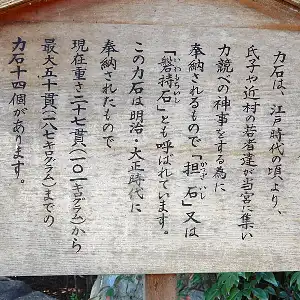 力石は、江戸時代の頃より、
氏子や近村の若者達が当宮に集い
力競べの神事をする為に
奉納されるもので「担石」又は
かつぎいし
「磐持石」とも呼ばれています。
いわもちいし
この力石は明治・大正時代に
奉納されたもので
現在重さ二十七貫(一〇一キログラム)から
最大五十貫(一八七キログラム)までの
力石十四個があります。